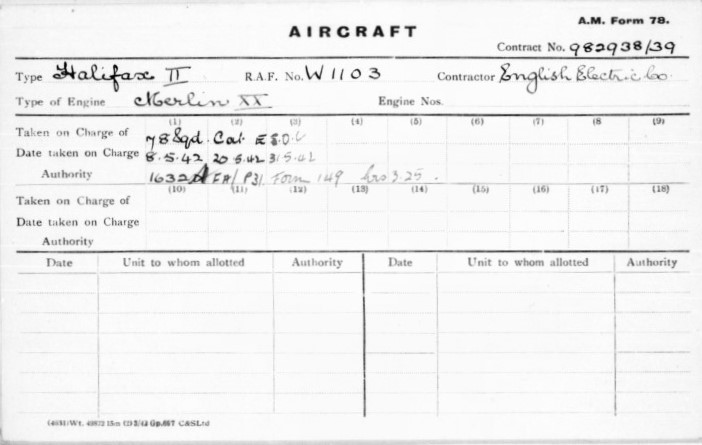 A.M. Form 78.
AIRCRAFT
Contract No. 982938/39
Type Halifax II R.A.F. No. W1103 Contractor English Electric Co.
Type of Engine Merlin XX Engine Nos.
(1) (2) (3) (4) (5) (6) (7) (8 (9)
Taken on Charge of 78 Sqd. Cat E S.O.C
Date taken on Charge 8.5.42 20.5.42 31.5.42
Authority 1632 EA/ P31 Form 149 hrs 325.
(10) (11) (12) (13) (14) (15) (16) (17) (18)
Taken on Charge of
Date taken on Charge
Authority
Date Unit to whom allotted Authority Date Unit to whom allotted Authority
Wt. 40872 15m C&SLtd